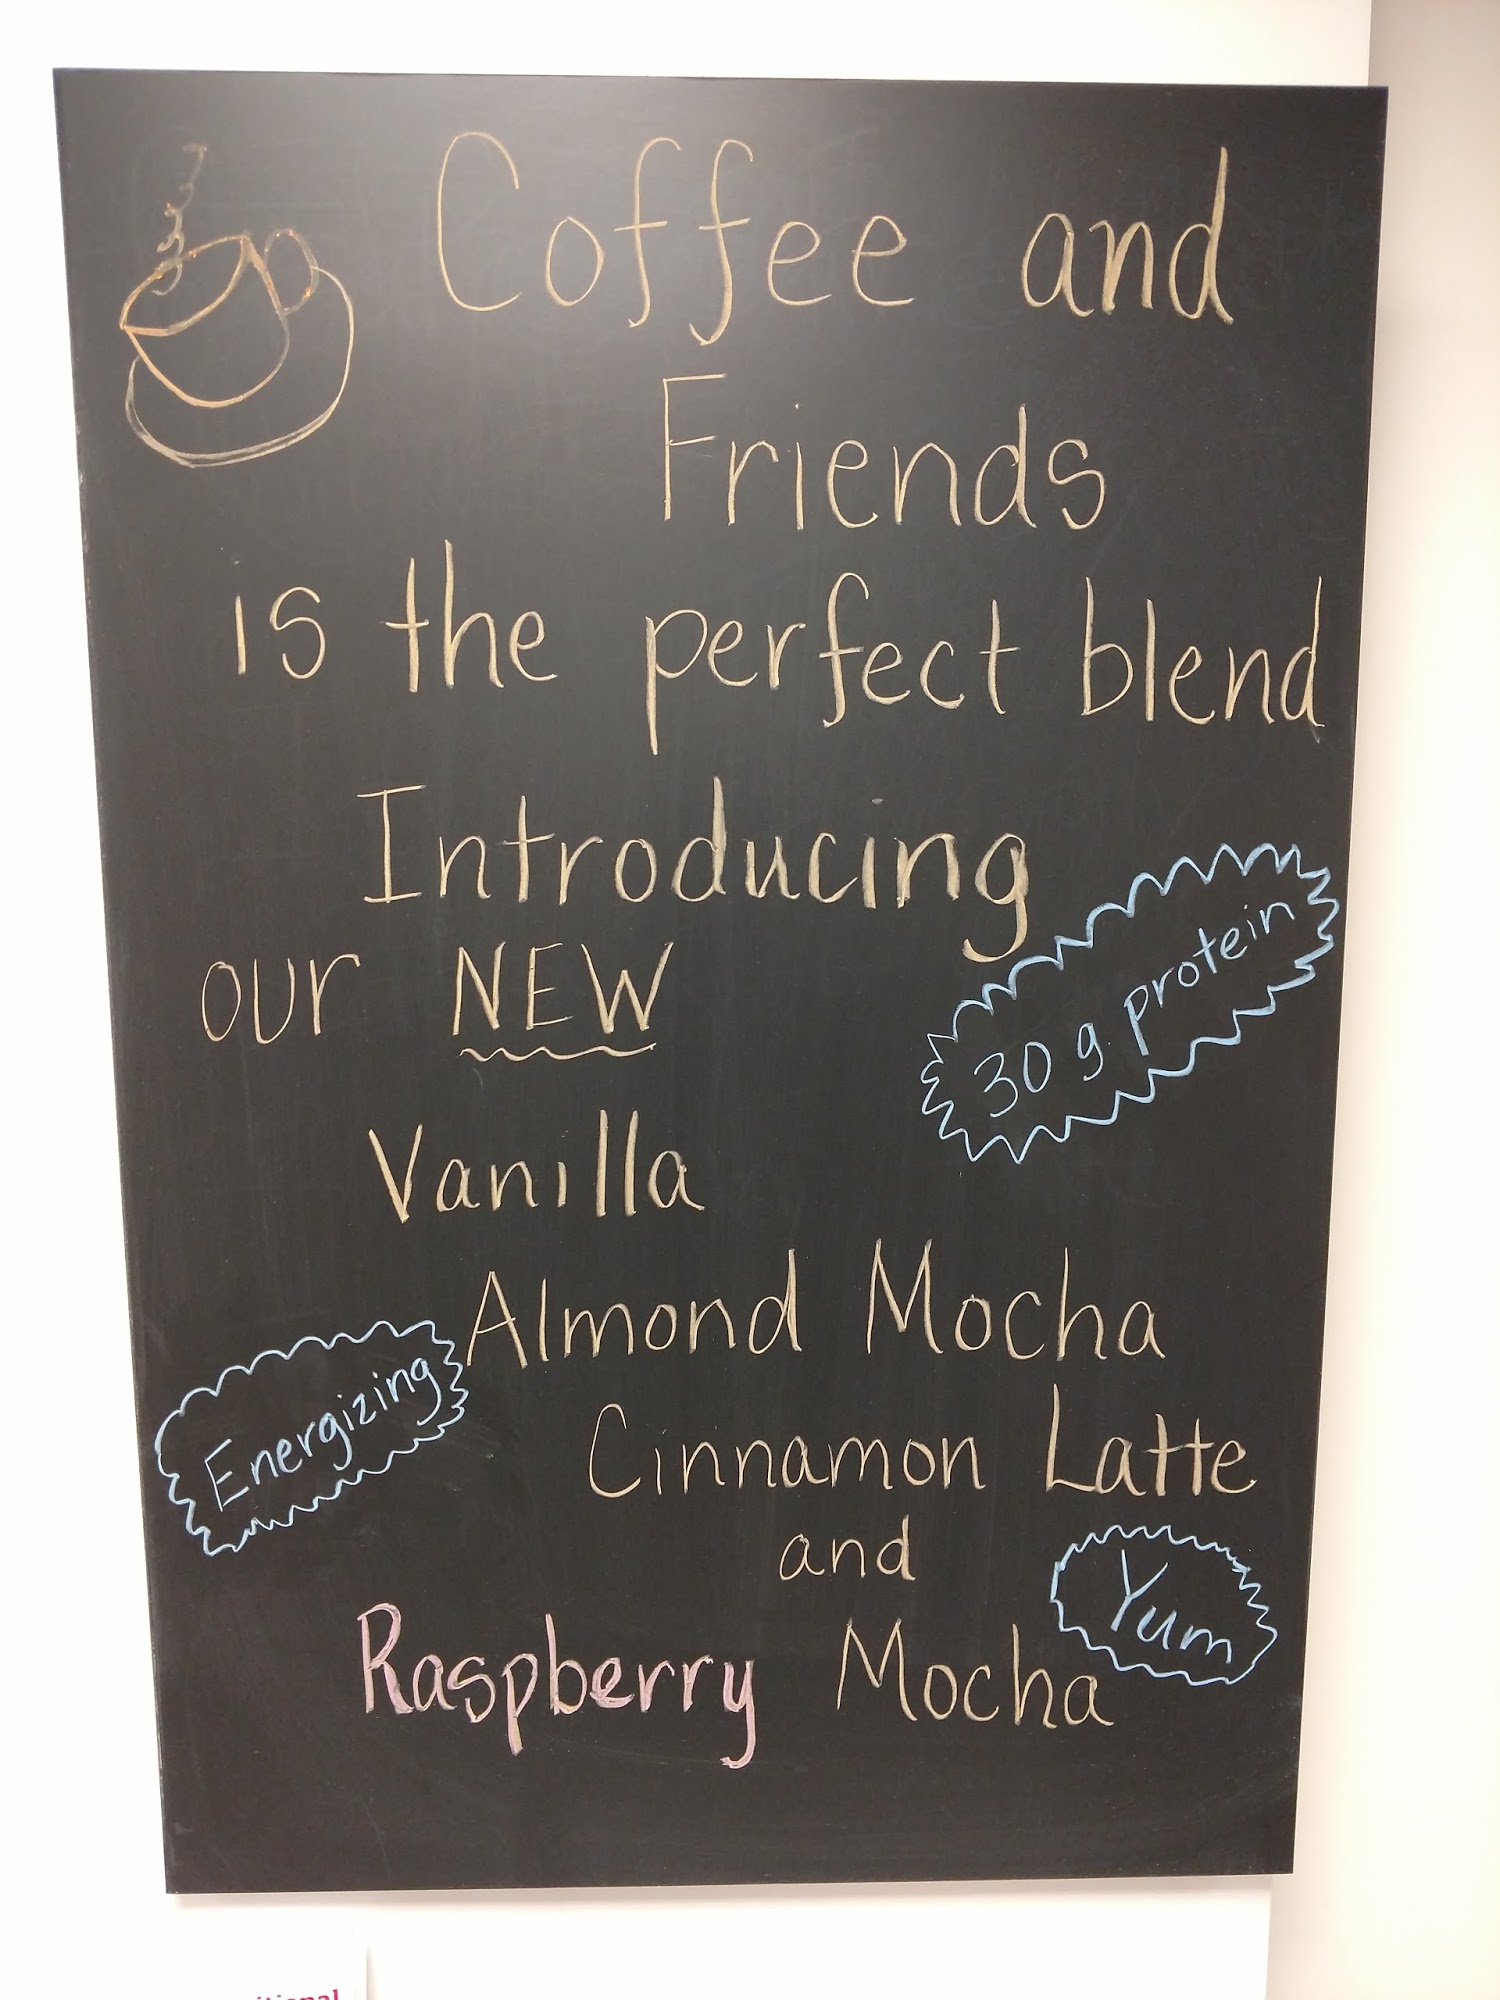 Coffee and
Friends
is the perfect blend
Introducing
our NEW
30 g protein
Vanilla
Almond Mocha
Energizing
Cinnamon Latte
and
Yum
Raspberry Mocha